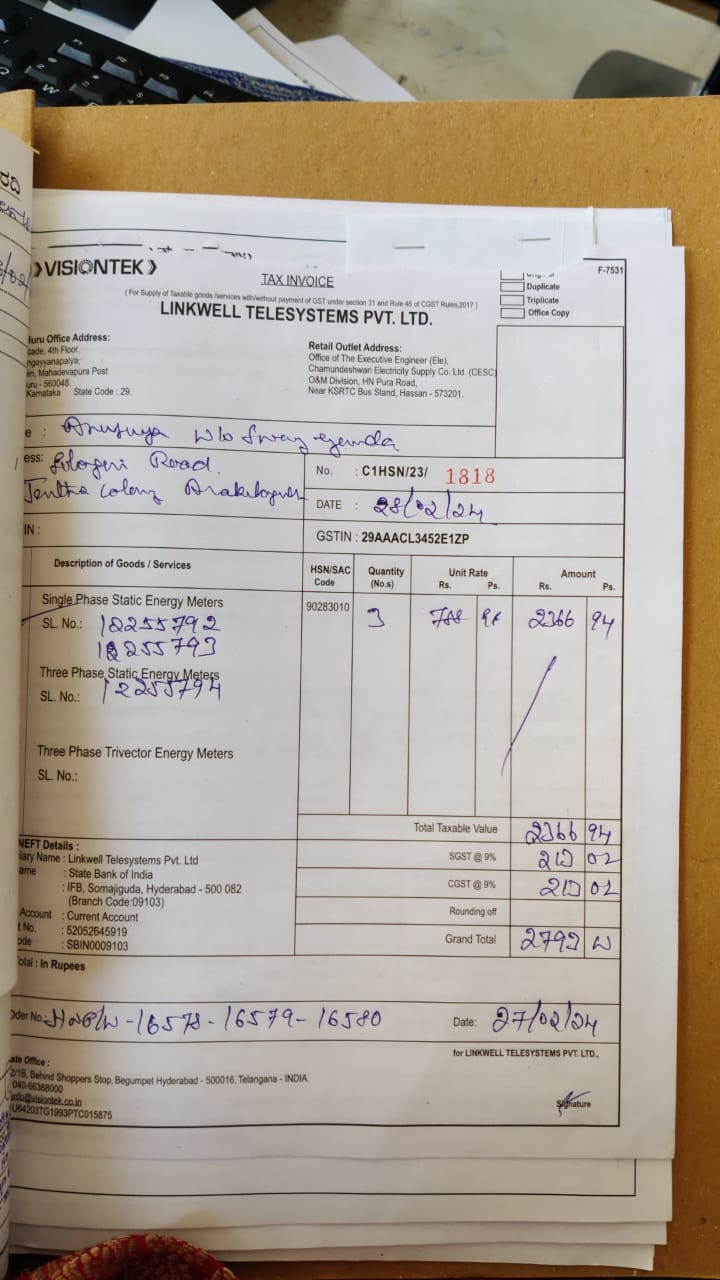 VISIONTEK
TAX INVOICE
( For Supply of Taxable goods /services with/without payment of GST under section 31 and Rule 46 of CGST Rules,2017 )
LINKWELL TELESYSTEMS PVT. LTD.
F-7531
Duplicate
Triplicate
Office Copy
Office Address:
4th Floor,
Mahadevapura Post
560048.
Karnataka State Code : 29.
Retail Outlet Address:
Office of The Executive Engineer (Ele),
Chamundeshwari Electricity Supply Co. Ltd. (CESC)
O&M Division, HN Pura Road,
Near KSRTC Bus Stand, Hassan - 573201.
Anusuya W/o
Road
No. : C1HSN/23/ 1818
DATE : 28/02/24
GSTIN : 29AAACL3452E1ZP
Description of Goods / Services
HSN/SAC Code
Quantity (No.s)
Unit Rate
Rs. Ps.
Amount
Rs. Ps.
Single Phase Static Energy Meters 90283010 3 788 98 2366 94
SL. No.: 12255792
12255793
Three Phase Static Energy Meters
12255794
SL. No.:
Three Phase Trivector Energy Meters
SL. No.:
Total Taxable Value 2366 94
SGST @ 9% 213 02
CGST @ 9% 213 02
Rounding off
Grand Total 2793
NEFT Details :
Name : Linkwell Telesystems Pvt. Ltd
: State Bank of India
: IFB, Somajiguda, Hyderabad - 500 082
(Branch Code:09103)
Account : Current Account
No. : 52052645919
: SBIN0009103
Total : In Rupees
No: 16578-16579-16580
Date: 27/02/24
for LINKWELL TELESYSTEMS PVT. LTD.,
Office :
Behind Shoppers Stop, Begumpet Hyderabad - 500016, Telangana - INDIA
040-66388000
info@visiontek.co.in
U64203TG1993PTC015875
Signature